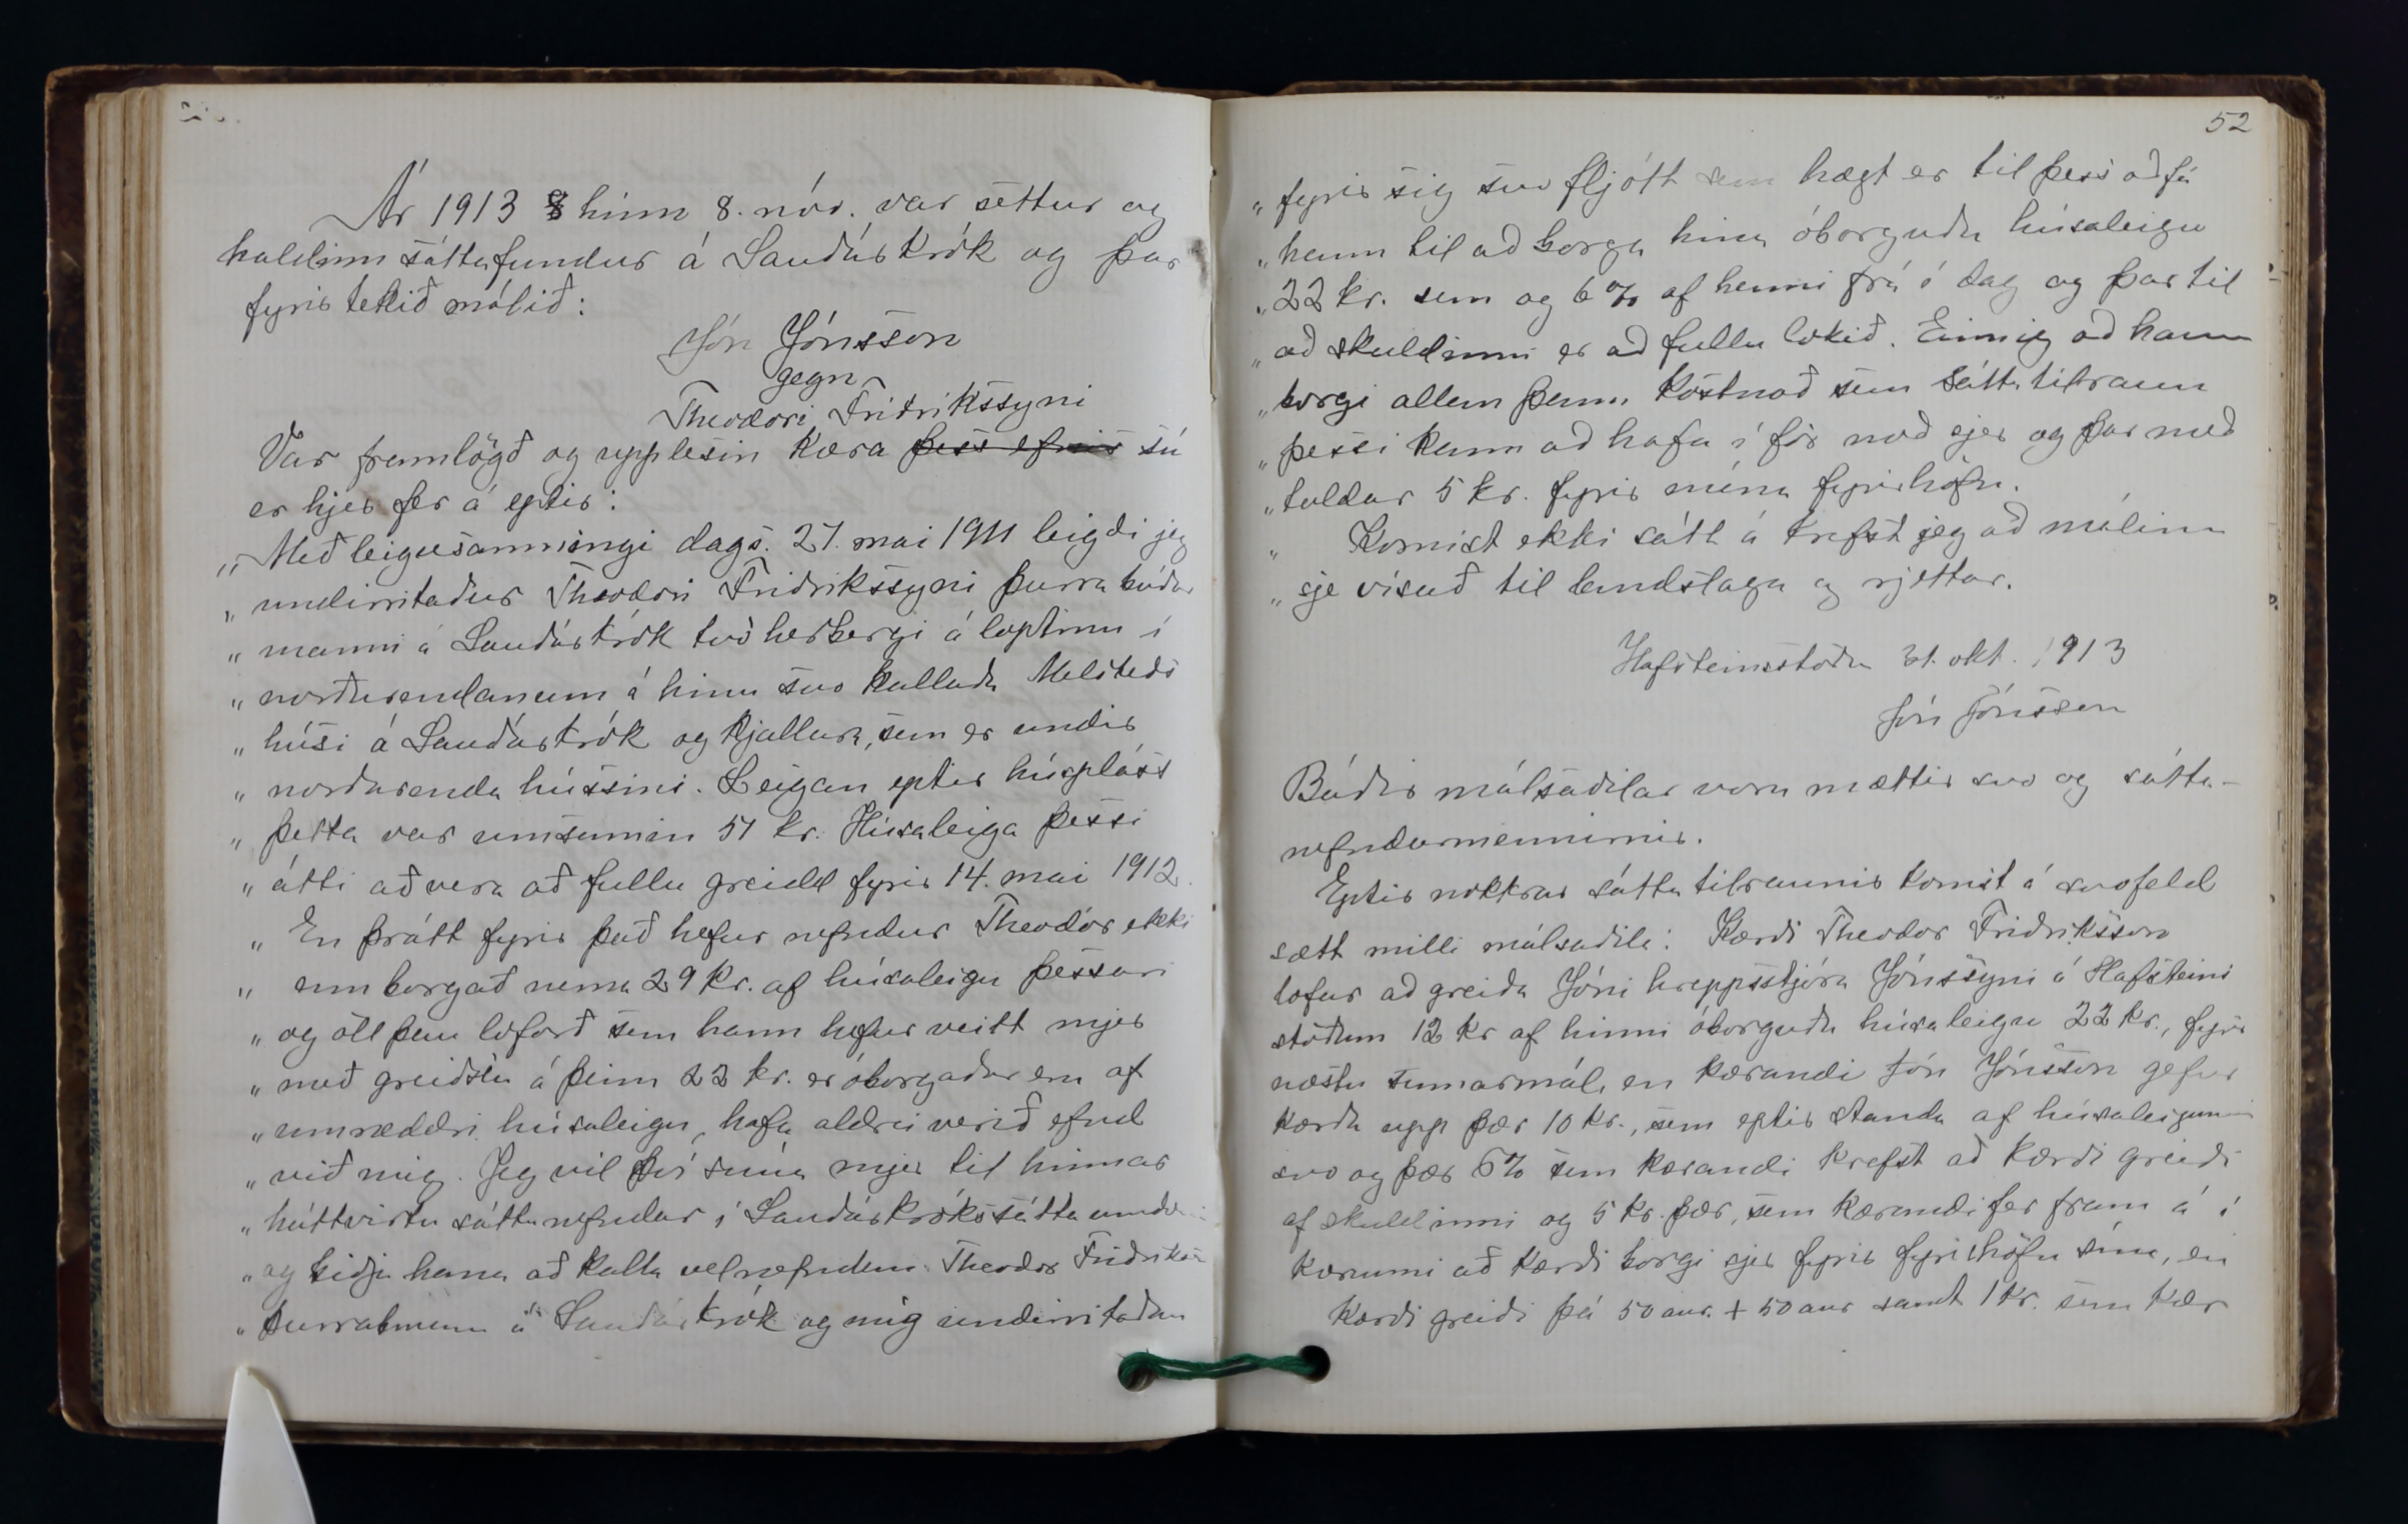 Ár 1913 hinn 8. nóv. var settur og
haldinn sáttafundur á Sauðárkrók og þar
fyrir tekið málið:
Jón Jónsson
gegn
Theodóri Friðrikssyni
Var framlögð og upplesin kæra þess efnis sú
er hjer fer á eptir:
„Með leigusamningi dags. 27. mai 1911 leigði jeg
„undirritaður Theodóri Friðrikssyni þurrabúðar
„manni á Sauðárkrók tvö herbergi á loptinu í
„norðurendanum á hinu svo kallaða Melsteds
„húsi á Sauðárkrók og kjallara, sem er undir
„norðurenda hússins. Leigan eptir húspláss
„þetta var umsamin 51 kr. Húsaleiga þessi
„átti að vera að fullu greidd fyrir 14. mai 1912.
„En þrátt fyrir það hefur nefndur Theodór ekki
„enn borgað nema 29 kr. af húsaleigu þessari
„og öll þau loforð sem hann hefur veitt mjer
„með greiðslu á þeim 22 kr. er óborgaðar eru af
„umræddri húsaleigu, hafa aldrei verið efnd
„við mig. Jeg vil því snúa mjer til hinnar
„háttvirtu sáttanefndar í Sauðárkrókssáttaumdæmi
„og biðja hana að kalla velnefndan Theodór Friðriksson
„þurrabmann á Sauðárkrók og mig undirritaðan
52
„fyrir sig svo fljótt sem hægt er til þess að fá
„hann til að borga hina óborguðu húsaleigu
„22 kr. sem og 6% af henni frá í dag og þar til
„að skuldinni er að fullu lokið. Einnig að hann
„borgi allan þann kostnað sem sáttatilraun
„þessi kann að hafa í för með sjer og þar með
„taldar 5 kr. fyrir mína fyrirhöfn.
„Komist ekki sátt á krefst jeg að málinu
„sje vísað til landslaga og rjettar.
Hafsteinsstöðu 31. okt. 1913
Jón Jónsson
Báðir málsaðilar voru mættir svo og sátta-
nefndarmennirnir.
Eptir nokkrar sáttatilraunir komst á svofeld
sætt milli málsaðila: Kærði Theodor Friðriksson
lofar að greiða Jóni hreppsstjóra Jónssyni á Hafsteins
stöðum 12 kr af hinni óborguðu húsaleigu 22 kr., fyrir
næstu sumarmál, en kærandi Jón Jónsson gefur
kærða upp þær 10 kr., sem eptir standa af húsaleigunni
svo og þær 6% sem kærandi krefst að kærði greiði
af skuldinni og 5 kr. þær, sem kærandi fer fram á í
kærunni að kærði borgi sjer fyrir fyrirhöfn sína, en
kærði greiði þá 50 aur. + 50 aur samt 1 kr. sem kær